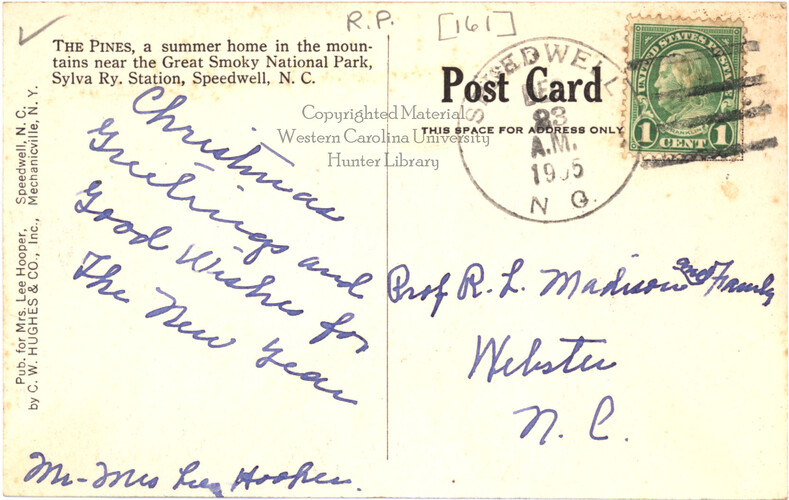 R.P. [161]
THE PINES, a summer home in the moun-
tains near the Great Smoky National Park,
Sylva Ry. Station, Speedwell, N. C.
Post Card
THIS SPACE FOR ADDRESS ONLY
UNITED STATES POSTAGE
FRANKLIN
1 CENT 1
SPEEDWELL
23
A.M.
N C.
Copyrighted Material
Western Carolina University
Hunter Library
Christmas
Greetings and
Good Wishes for
The New Year
Mr - Mrs Lee Hooper.
Prof R. L. Madison and Family
Webster
N. C.
Pub. for Mrs. Lee Hooper, Speedwell, N. C.
by C. W. HUGHES & CO., Inc., Mechanicville, N. Y.